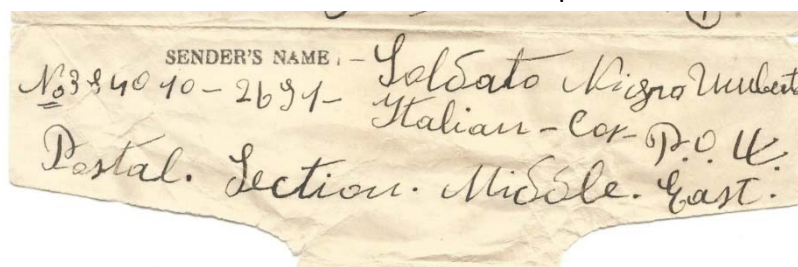 ①
SENDER'S NAME: – Soldato Nigro Umberto
Italian – Cor – P.O.W.
Postal. Section. Middle. East.